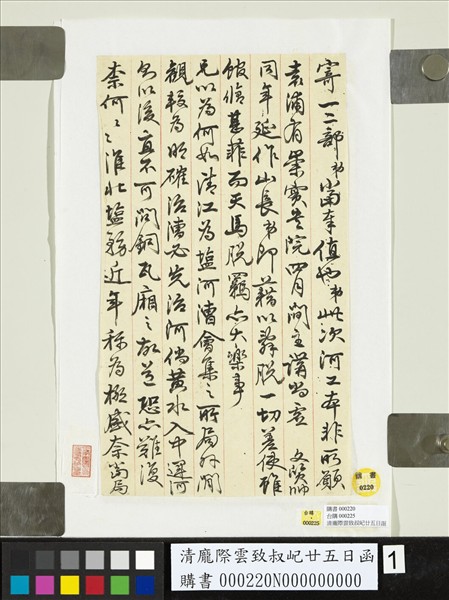 寄一二部來當奉值也弟此次河工本非所願
袁浦有崇實書院四月間主講尚虛 文質帥
同年延作山長弟即藉以辭脫一切差使雖
館脩甚菲而天馬脫羈亦大樂事
兄以為何如清江為鹽河漕會集之所局外閒
觀較為明確治漕必先治河倘黃水入中運河
以後直不可問銅瓦廂之故道恐亦難復
柰何柰何淮北鹽務近年稱為極盛奈當局
購書
0220
台購
000225
購書 000220
台購 000225
清龐際雲致叔屺廿五日函
清龐際雲致叔屺廿五日函
購書 000220N000000000
1